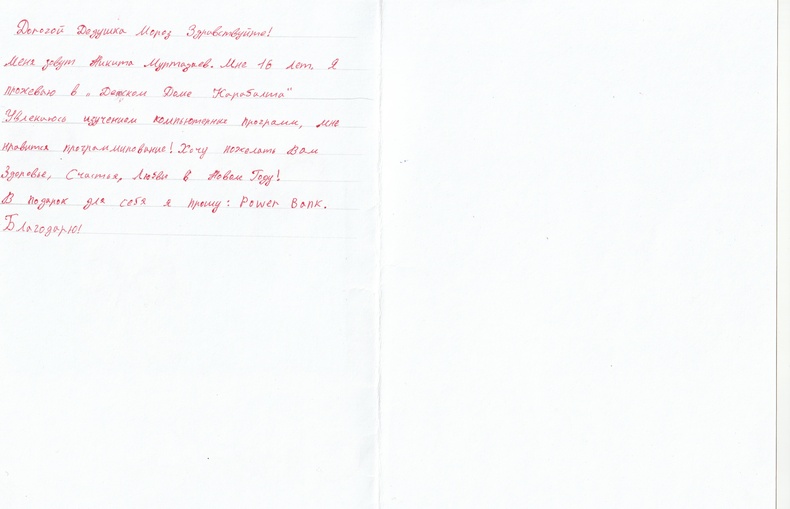 Дорогой Дедушка Мороз Здравствуйте!
Меня зовут Никита Муртазаев. Мне 16 лет. Я
проживаю в „Детском Доме Карабалта"
Увлекаюсь изучением компьютерных программ, мне
нравится программирование! Хочу пожелать Вам
Здоровье, Счастья, Любви в Новом Году!
В подарок для себя я прошу: Power Bank.
Благодарю!